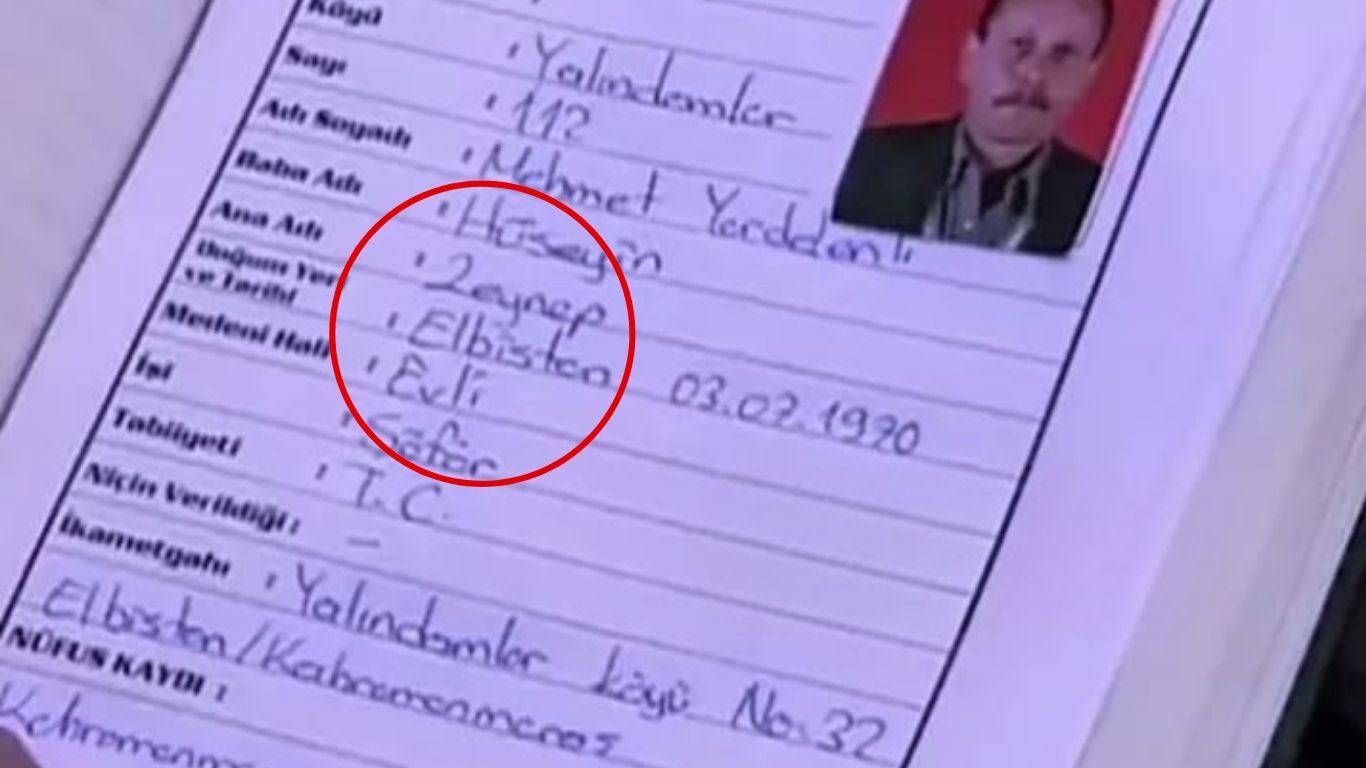 Köyü : Yalındamlar
Sayı : 112
Adı Soyadı : Mehmet Yurddanlı
Baba Adı : Hüseyin
Ana Adı : Zeynep
Doğum Yer
ve Tarihi : Elbistan 03.07.1970
Medeni Hali : Evli
İşi : Şöför
Tabiiyeti : T.C.
Niçin Verildiği : —
İkametgahı : Yalındamlar köyü No.32
Elbistan/Kahramanmaraş
NÜFUS KAYDI :